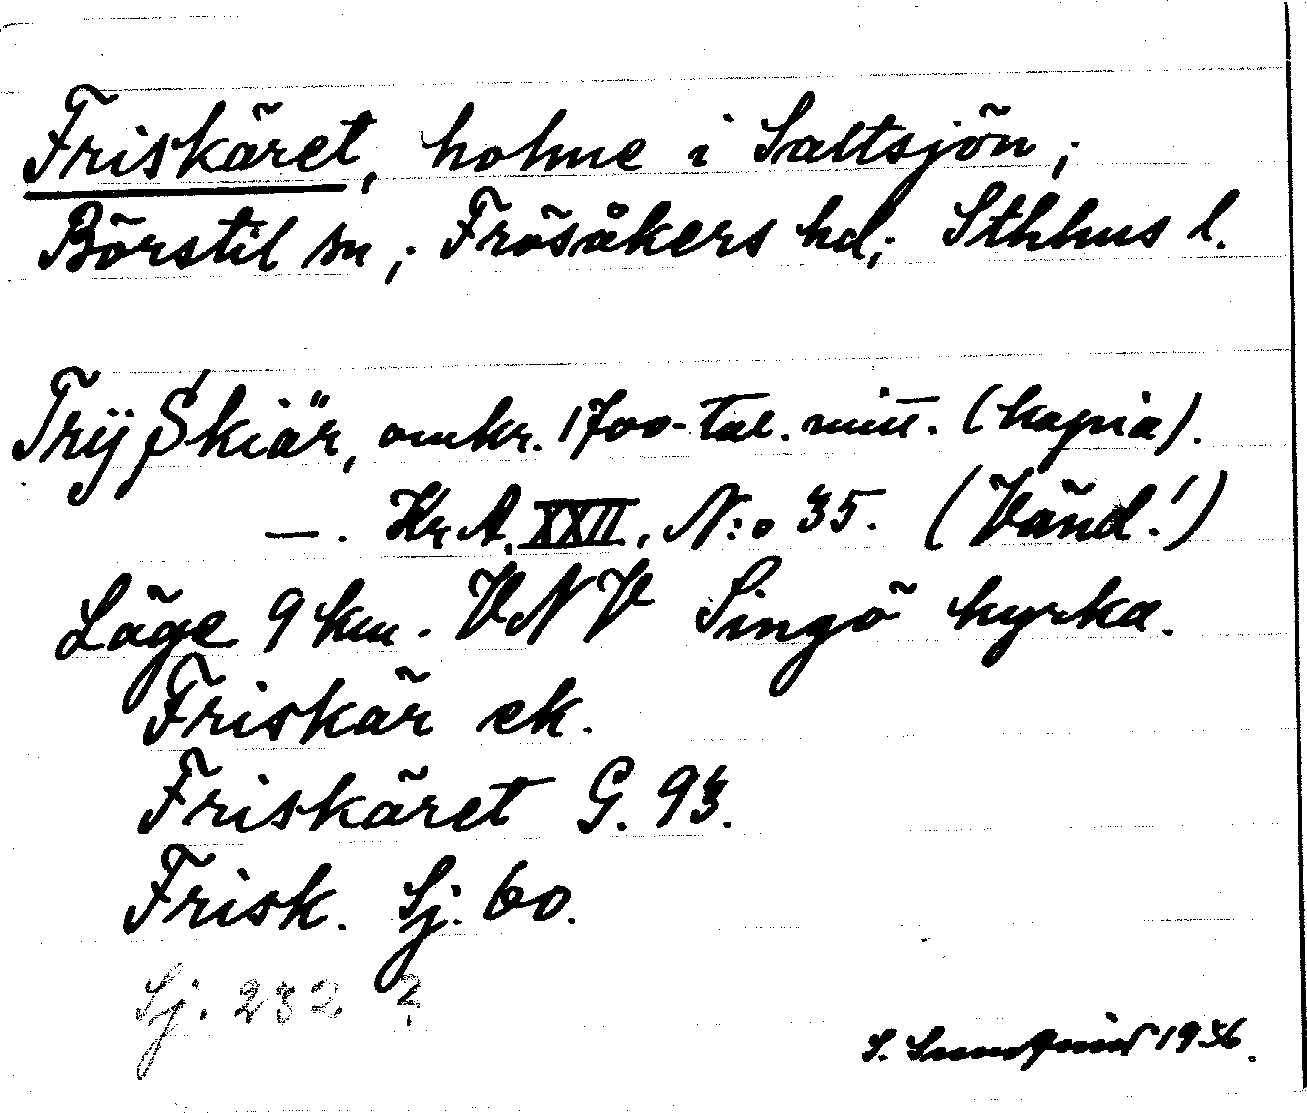 Friskäret, holme i Saltsjön;
Börstil sn; Frösåkers hd; Sthlms l.
Trÿ Skiär, omkr. 1700-tal. mitt. (kopia).
—. Kr. A. XXII. N:o 35. (Vänd!)
Läge 9 km. VNV Singö kyrka.
Friskär ek.
Friskäret G. 93.
Frisk. Sj. 60.
Sj. 232 ?
S. Sundqvist 1936.